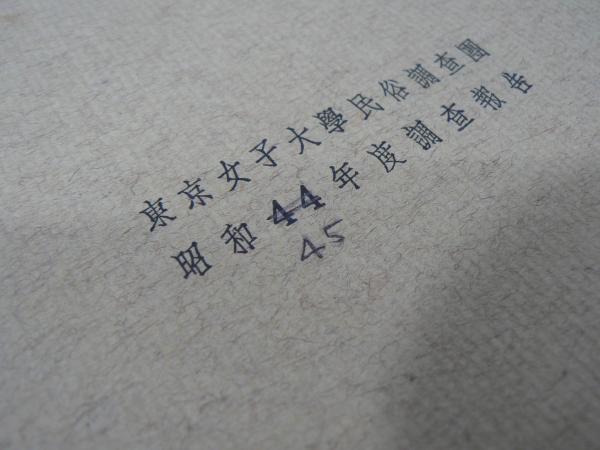 東京女子大學民俗調査團
昭和44年度調査報告
45